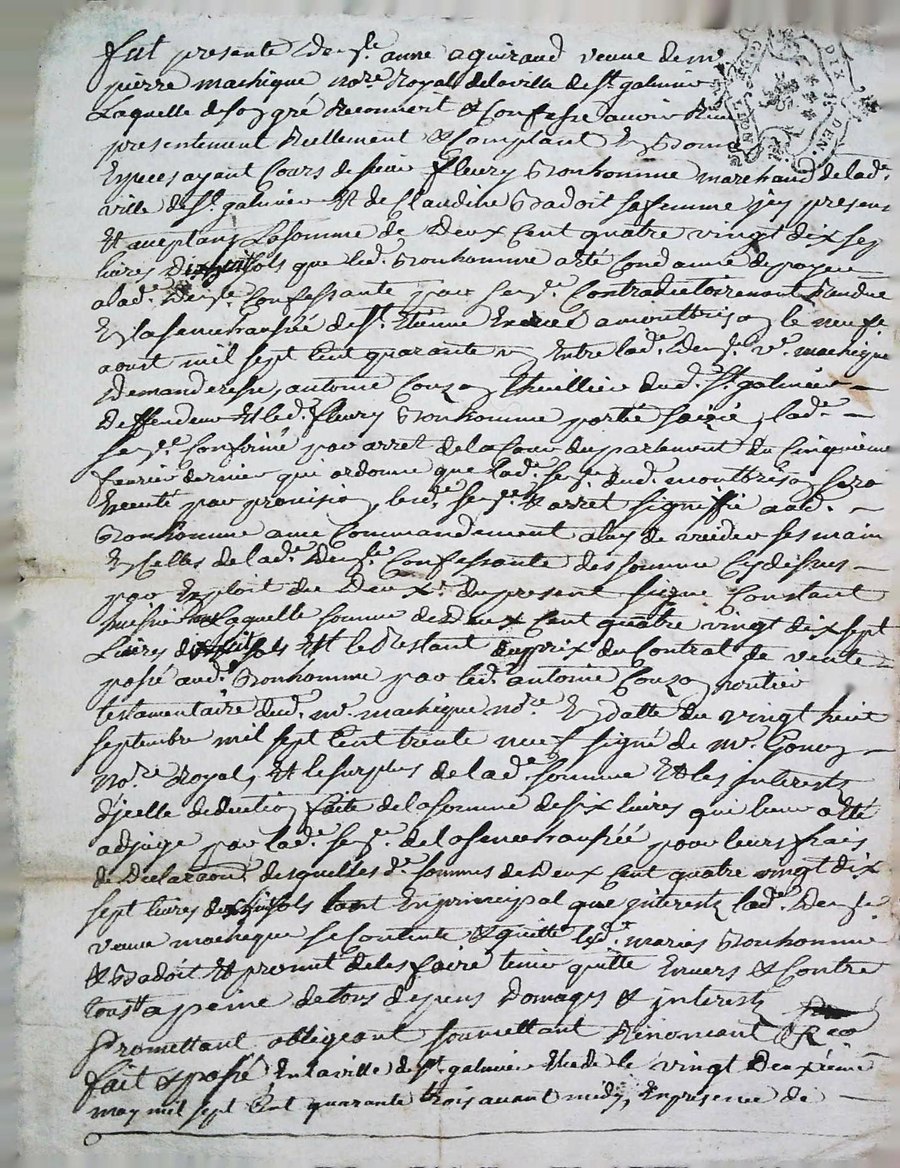 fut presente dem.lle anne aguiraud veuve de m.e
pierre machique, no.re Royal de la ville de s.t galmier
Laquelle de son gré Reconnoit & Confesse avoir Receu
presentement Reellement & Comptant En bonnes
Especes ayant Cours de sieur fleury Bonhomme marchand de lad.e
ville de s.t galmier Et de Claudine Badoit sa femme jcy presens
Et aceptans La somme de deux Cent quatre vingt dix sep
livres sols que led. Bonhomme a eté Condamné de payer
a lad.e dem.lle Confessante par sen.ce Contradictoirement Randue
En la senechaussée de s.t Etienne a montbrison le neufe
aoust mil sept Cent quarante Entre lad.e dem.lle v.e machique
demanderesse, antoine dud. s.t galmier
deffendeur Et led. fleury Bonhomme partie saizie, lad.e
sen.ce Confirmé par arret de la Cour du parlement du Cinquieme
fevrier dernier que ordonne que lad.e sen.ce dud. montbrison sera
Executé par provision, led. sen.ce & arret signiffié aud.
Bonhomme avec Commandement a luy de vuider ses main
En Celles de lad.e dem.lle Confessante des somme Cy dessus
par Exploit du deux.e du present signé Constant
huissier Laquelle somme de deux Cent quatre vingt dix sept
Livres sols Est le Restant du prix du Contrat de vente
passé aud. Bonhomme par led. antoine heritier
testamentaire dud. m.e machique no.re En datte du vingt huit
septembre mil sept Cent trente neuf signé de m.e
No.re Royal, Et le surplus de lad.e somme Et les interests
d'jcelle deduction faite de la somme de six livres qui leur a eté
adjugé par lad.e sen.ce de la senechaussée pour leurs frais
de Declaraon. desquelles d.e sommes de deux Cent quatre vingt dix
sept livres sols tant En principal que interests lad.e dem.lle
veuve machique se Contente & quitte led. maries Bonhomme
& Badoit Et promet de les faire tenir quitte Envers & Contre
tous a peine de tous depens Domages & interests
Promettant obligeant soumettant Renoncant &
fait & passé En la ville de s.t galmier Etude le vingt deuxieme
may mil sept Cent quarante trois avant midy, En presence de